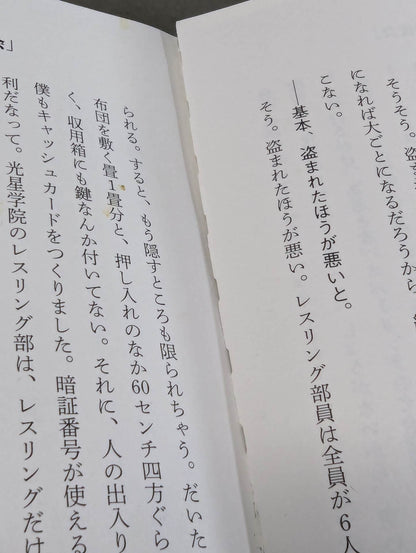 そうそう。盗
になれば大ごとになるだろうから、
こない。
──基本、盗まれたほうが悪いと。
そう。盗まれたほうが悪い。レスリング部員は全員が６人
られる。すると、もう隠すところも限られちゃう。だいた
布団を敷く畳１畳分と、押し入れのなか60センチ四方ぐら
く、収用箱にも鍵なんか付いてない。それに、人の出入り
僕もキャッシュカードをつくりました。暗証番号が使える
利だなって。光星学院のレスリング部は、レスリングだけ